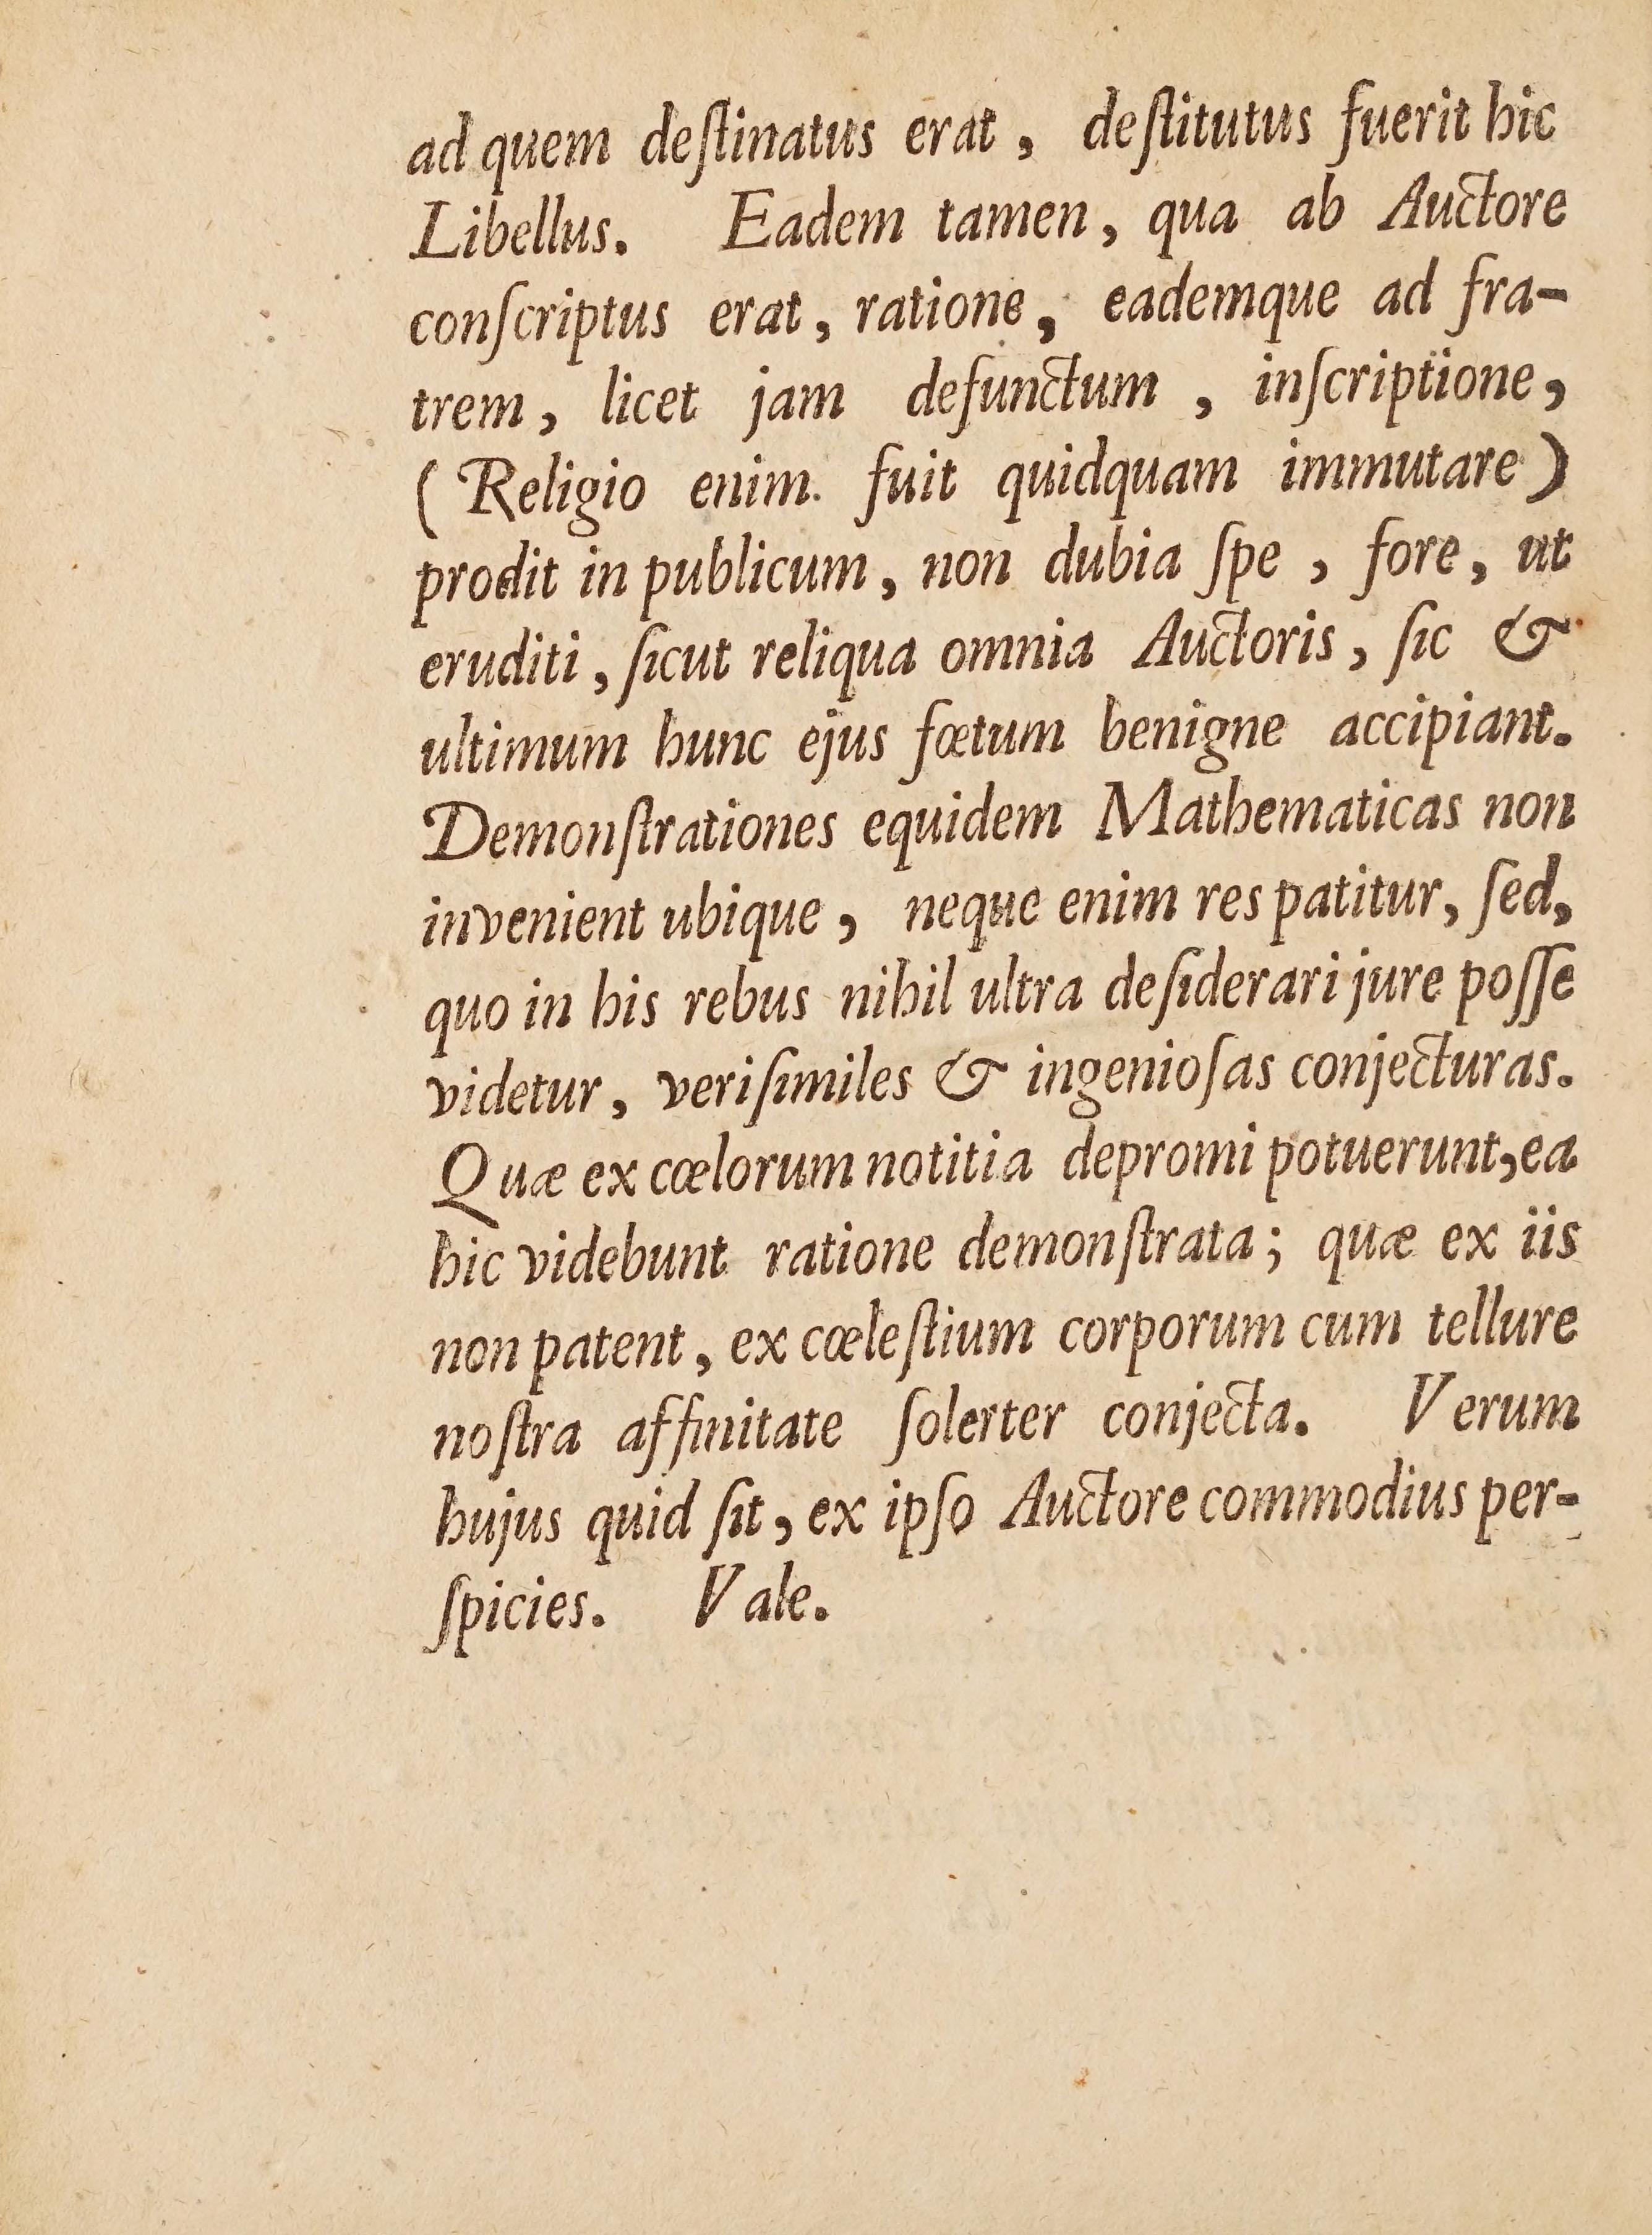 ad quem deſtinatus erat, deſtitutus fuerit hic
Libellus. Eadem tamen, qua ab Auctore
conſcriptus erat, ratione, eademque ad fra-
trem, licet jam defunctum, inſcriptione,
(Religio enim fuit quidquam immutare)
prodit in publicum, non dubia ſpe, fore, ut
eruditi, ſicut reliqua omnia Auctoris, ſic &
ultimum hunc ejus fœtum benigne accipiant.
Demonſtrationes equidem Mathematicas non
invenient ubique, neque enim res patitur, ſed,
quo in his rebus nihil ultra deſiderari jure poſſe
videtur, veriſimiles & ingenioſas conjecturas.
Quæ ex cœlorum notitia depromi potuerunt, ea
hic videbunt ratione demonſtrata; quæ ex iis
non patent, ex cœleſtium corporum cum tellure
noſtra affinitate ſolerter conjecta. Verum
hujus quid ſit, ex ipſo Auctore commodius per-
ſpicies. Vale.